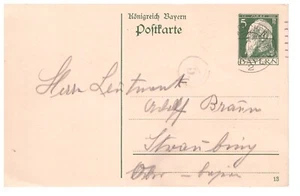 Königreich Bayern
Postkarte
5
BAYERN
Herrn Leutnant
Adolf Braun
Straubing
13